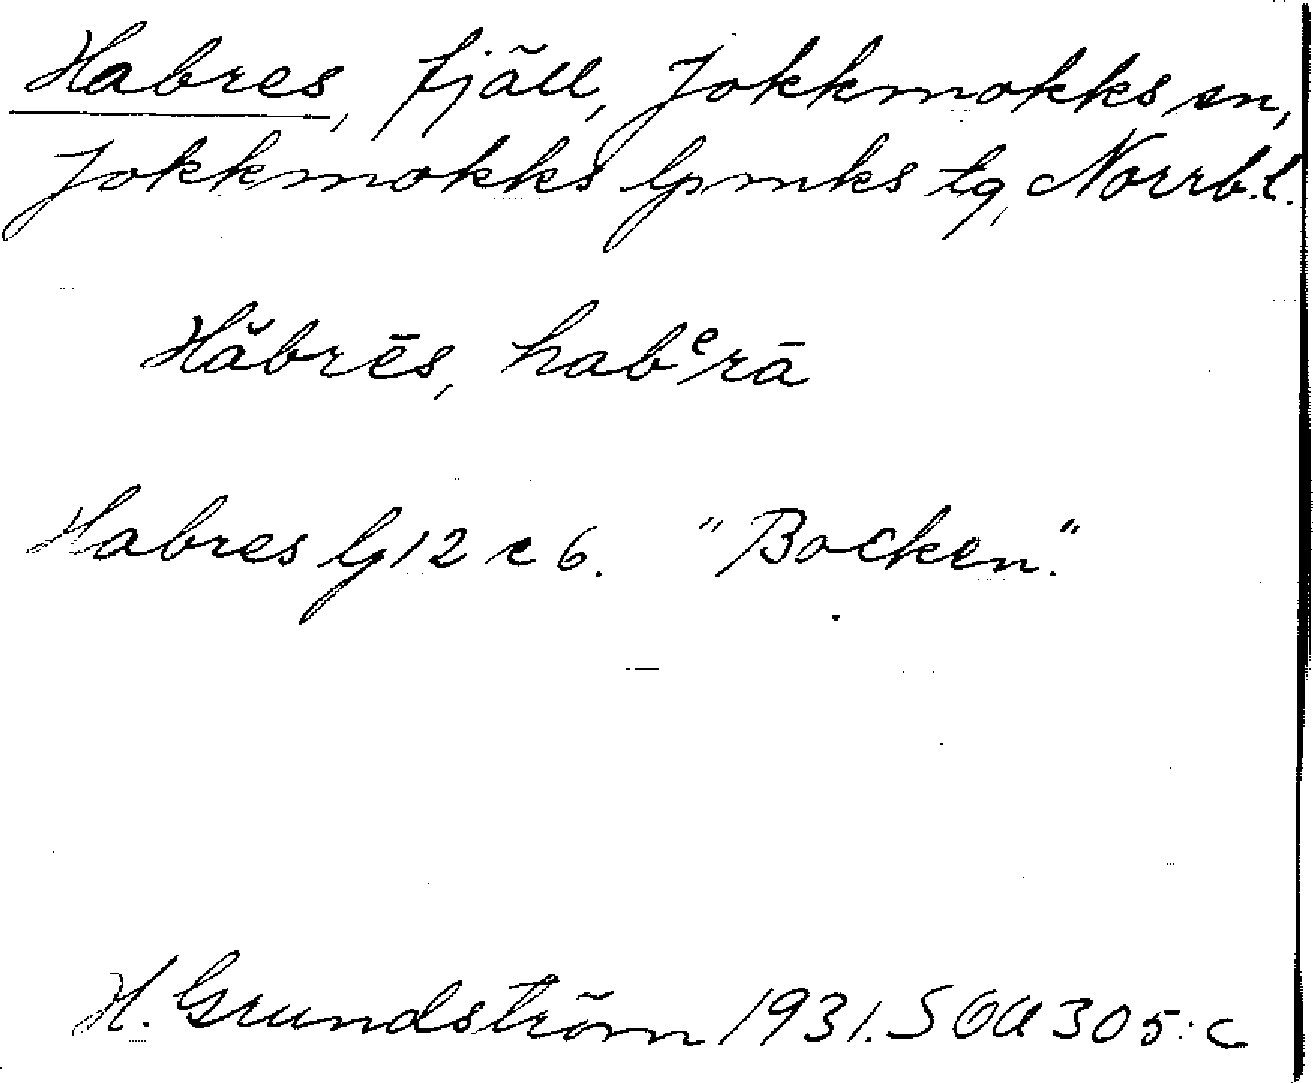 Habres, fjäll, Jokkmokks sn,
Jokkmokks lpmks tg, Norrb.l.
Hăbrēs, habᵉrā
Habres G12 c 6. "Bocken."
H. Grundström 1931. SOU 305:c